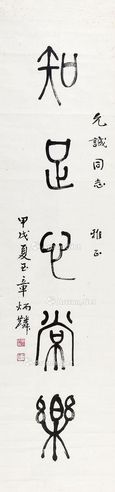 知足心常樂
允誠同志 雅正
甲戌夏至章炳麟